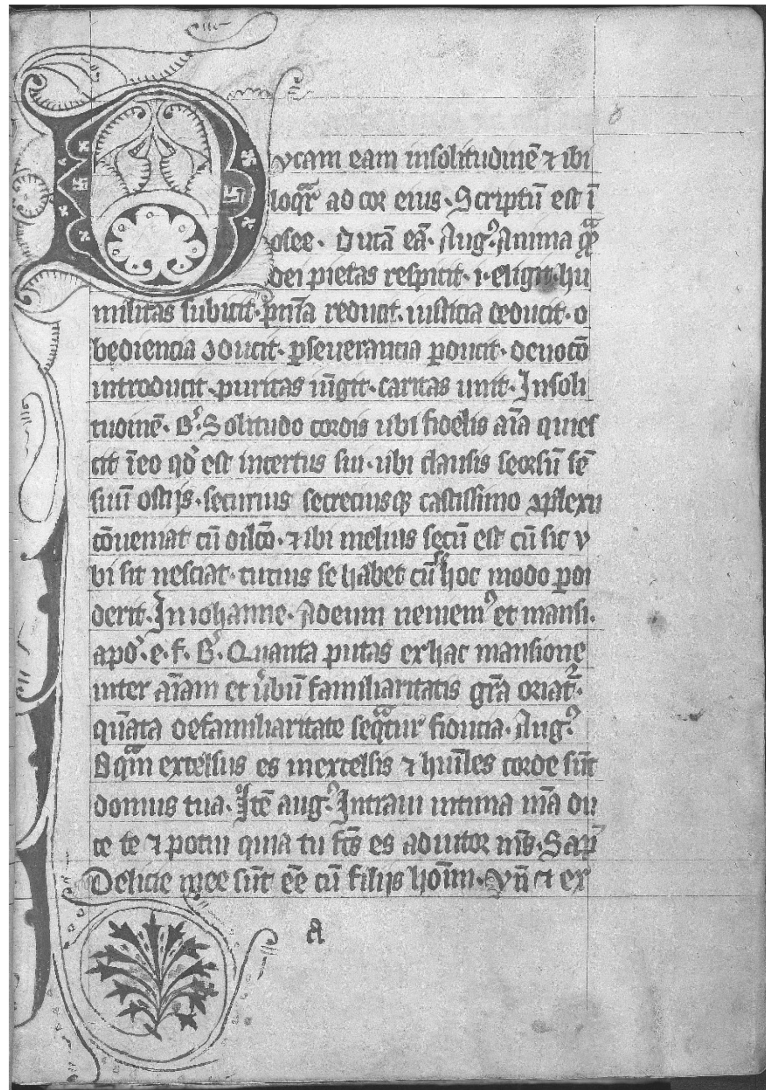 Dvcam eam insolitudinē ⁊ ibi
loqr̄ ad cor eius. Scriptū est ī
osee. Ducā eā. Aug9. Anima q̄
dei pietas respicit. i. eligit. hu
militas subicit. pn̄ia reducit. iusticia deducit. o
bediencia ɔducit. p̱seuerancia p̱ducit. deuotō
introducit. puritas iūgit. caritas unit. Insoli
tudinē. B9. Solitudo cordis ubi fidelis aīa quies
cit īeo qd̓ est incertus sui. ubi clausis seorsū sē
suū ostijs. securius secreciusqꝫ castissimo
cōueniat cū dilcō. ⁊ ibi melius secū est cū sic v
bi sit nesciat. tucius se habet cū se hoc modo p̱di
derit. In iohanne. Adeum veniem9 et mansi.
apd̓. e. f. B9. Quanta putas exhac mansione
inter aīam et u̓bū familiaritatis grā oriat᷑.
quāta defamiliaritate seq̄tur fiducia. Aug9.
excelsus es inexcelsis ⁊ humīles corde sūt
domus tua. Itē aug9. Intraui intima mēa du
ce te ⁊ potui quia tu fc̄s es adiutor me9. Sap̄.
Delicie mee sūt eē cū filijs homīn. Vn̄ ⁊ ex
a
8